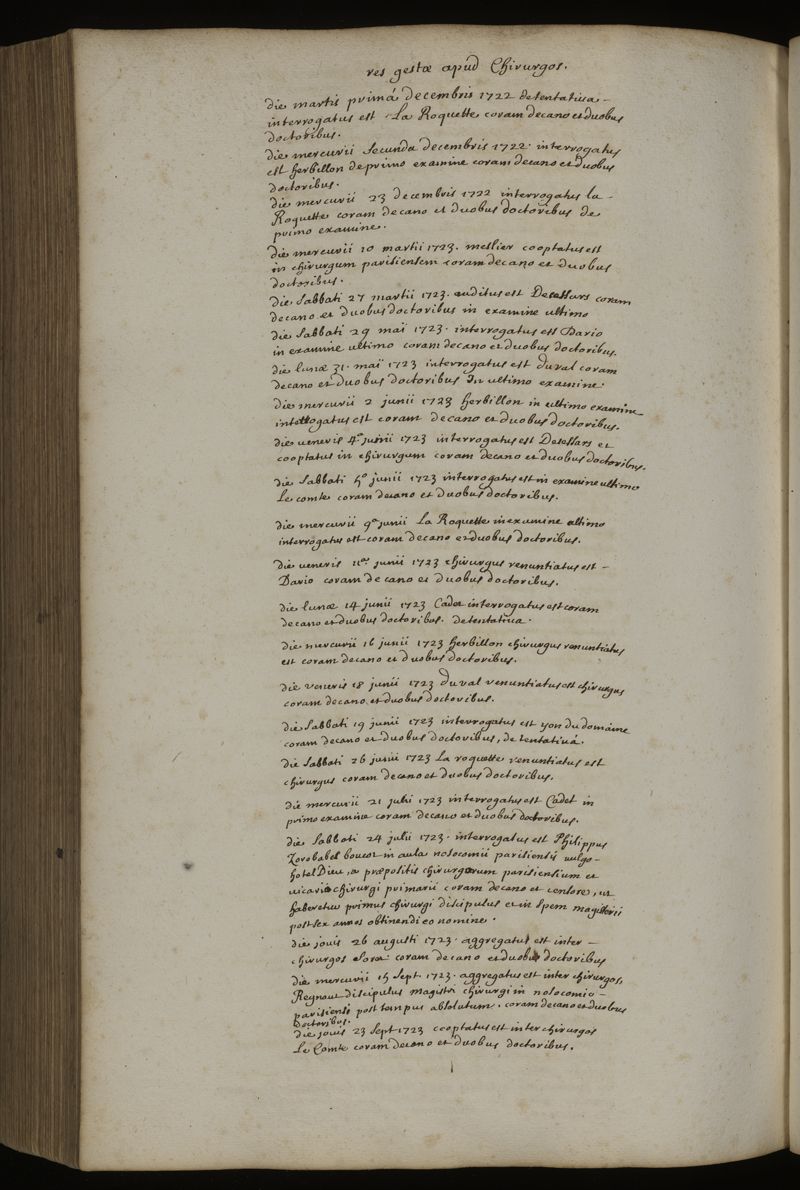 res gestæ apud Chirurgos.
die martis primâ decembris 1722 de tentativa -
interrogatus est La Roquette coram decano et duobus
doctoribus.
die mercurii secunda decembris 1722. interrogatus
est herbillon de primo examine coram decano et duobus
doctoribus.
die mercurii 23 decembris 1722 interrogatus la -
Roquette coram decano et duobus doctoribus de
primo examine.
die mercurii 10 martii 1723. mellier cooptatus est
in chirurgum parisiensem coram decano et duobus
doctoribus.
die sabbati 27 martii 1723. auditus est Desessars coram
decano et duobus doctoribus in examine ultimo
die sabbati 29 mai 1723. interrogatus est Dario
in examine ultimo coram decano et duobus doctoribus.
die lunæ 31. maï 1723 interrogatus est duval coram
decano et duobus doctoribus In ultimo examine.
die mercurii 2 junii 1723 herbillon in ultimo examine
intellogatus est coram decano et duobus doctoribus.
die veneris 4.ª junii 1723 interrogatus est Desessars et
cooptatus in chirurgum coram decano et duobus doctoribus.
die sabbati 5º junii 1723 interrogatus est in examine ultimo
Le comte coram decano et duobus doctoribus.
die mercurii 9ª junii La Roquette in examine ultimo
interrogatus est coram decano et duobus doctoribus.
die veneris 11ª junii 1723 chirurgus renuntiatus est -
Dario coram decano et duobus doctoribus.
die lunæ 14 junii 1723 Cadet interrogatus est coram
decano et duobus doctoribus. de tentativa.
die mercurii 16 junii 1723 herbillon chirurgus renuntiatus
est coram decano et duobus doctoribus.
die veneris 18 junii 1723 duval renuntiatus est chirurgus
coram decano et duobus doctoribus.
die sabbati 19 junii 1723 interrogatus est yon du domaine
coram decano et duobus doctoribus, de tentativâ.
die sabbati 26 junii 1723 La roquette renuntiatus est
chirurgus coram decano et duobus doctoribus.
die mercurii 21 julii 1723 interrogatus est Cadet in
primo examine coram decano et duobus doctoribus.
die sabbati 24 julii 1723. interrogatus est Philippus
Zorobabel boucot in aula nosocomii parisiensis vulgo -
hotel Dieu, a præpositis chirurgorum parisiensium et
vicario chirurgi primarii coram decano et censore, ut
haberetur primus chirurgi discipulus et in spem magisterii
post sex annos obtinendi eo nomine.
die jovis 26 augusti 1723. aggregatus est inter -
chirurgos coram decano et duobus doctoribus
die mercurii 15 sept. 1723. aggregatus est inter chirurgos,
Regnaut discipulus magistri chirurgi in nosocomio -
parisiensi post tempus absolutum. coram decano et duobus
doctoribus.
die jovis 23 sept 1723 cooptatus est inter chirurgos
Le Comte coram decano et duobus doctoribus.